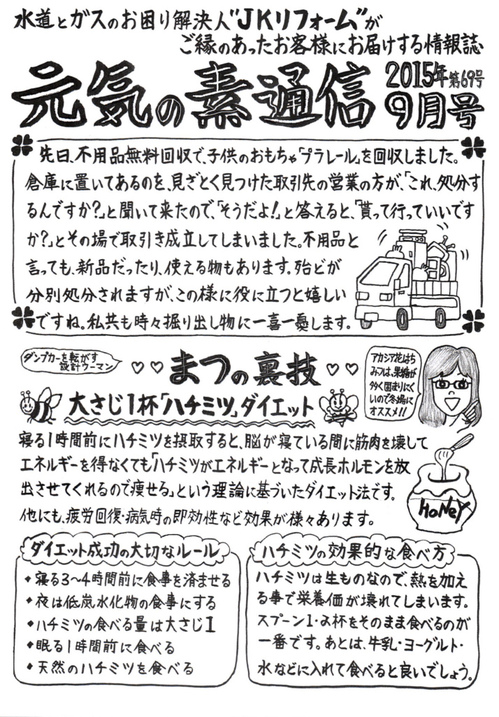 水道とガスのお困り解決人"JKリフォーム"が
ご縁のあったお客様にお届けする情報誌
元気の素通信
2015年第69号
9月号
先日、不用品無料回収で、子供のおもちゃ「プラレール」を回収しました。
倉庫に置いてあるのを、見ざとく見つけた取引先の営業の方が、「これ、処分す
るんですか?」と聞いて来たので、「そうだよ!」と答えると、「貰って行っていいです
か?」とその場で取引き成立してしまいました。不用品と
言っても、新品だったり、使える物もあります。殆どが
分別処分されますが、この様に役に立つと嬉しい
ですね。私共も時々掘り出し物に一喜一憂します。
ダンプカーを転がす
設計ウーマン
まつの裏技
大さじ1杯「ハチミツ」ダイエット
アカシア花はち
みつは、果糖が
多く固まりにく
いので冬場に
オススメ!!
寝る1時間前にハチミツを摂取すると、脳が寝ている間に筋肉を壊して
エネルギーを得なくても「ハチミツがエネルギーとなって成長ホルモンを放
出させてくれるので痩せる」という理論に基づいたダイエット法です。
他にも、疲労回復・病気時の即効性など効果が様々あります。
HONEY
ダイエット成功の大切なルール
・寝る3~4時間前に食事を済ませる
・夜は低炭水化物の食事にする
・ハチミツの食べる量は大さじ1
・眠る1時間前に食べる
・天然のハチミツを食べる
ハチミツの効果的な食べ方
ハチミツは生ものなので、熱を加え
る事で栄養価が壊れてしまいます。
スプーン1・2杯をそのまま食べるのが
一番です。あとは、牛乳・ヨーグルト・
水などに入れて食べると良いでしょう。